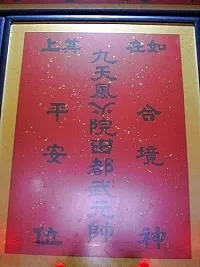 如在其上
合境平安
九天風火院田都武元帥
神位